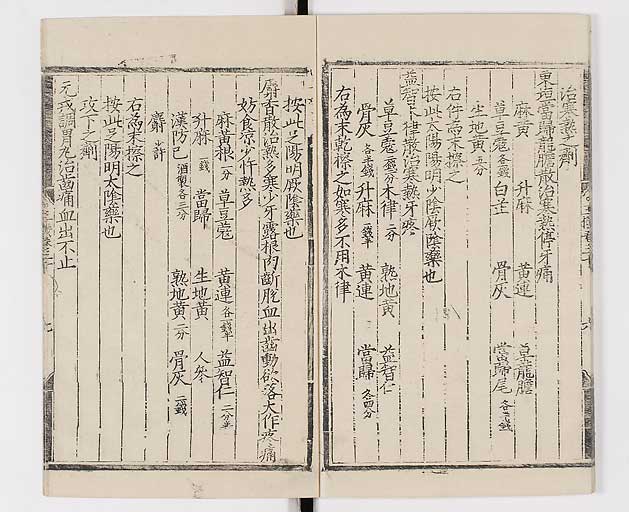 治寒熱之劑
東垣當歸龍膽散治寒熱停牙痛
麻黄 升麻 黄連 草龍膽
草豆蔲各一錢 白芷 骨灰 當歸尾各三錢
生地黄五分
右件爲末擦之
按此太陽陽明少陰厥陰藥也
益智木律散治寒熱牙疼
草豆蔲 木律二分 熟地黄 益智仁
骨灰各五錢 升麻一錢半 黄連 當歸各四分
右爲末乾擦之如寒多不用木律
按此足陽明厥陰藥也
麝香散治熱多寒少牙露根肉斷脫血出齒動欲落大作疼痛
妨食凉少忤熱多
麻黄根一分 草豆蔲 黄連各一錢半 益智仁二分半
升麻一錢 當歸 生地黄 人參
漢防已酒製各三分 熟地黄二分 骨灰二錢
麝少許
右爲末擦之
按此足陽明太陰藥也
攻下之劑
元戎調胃丸治齒痛血出不止